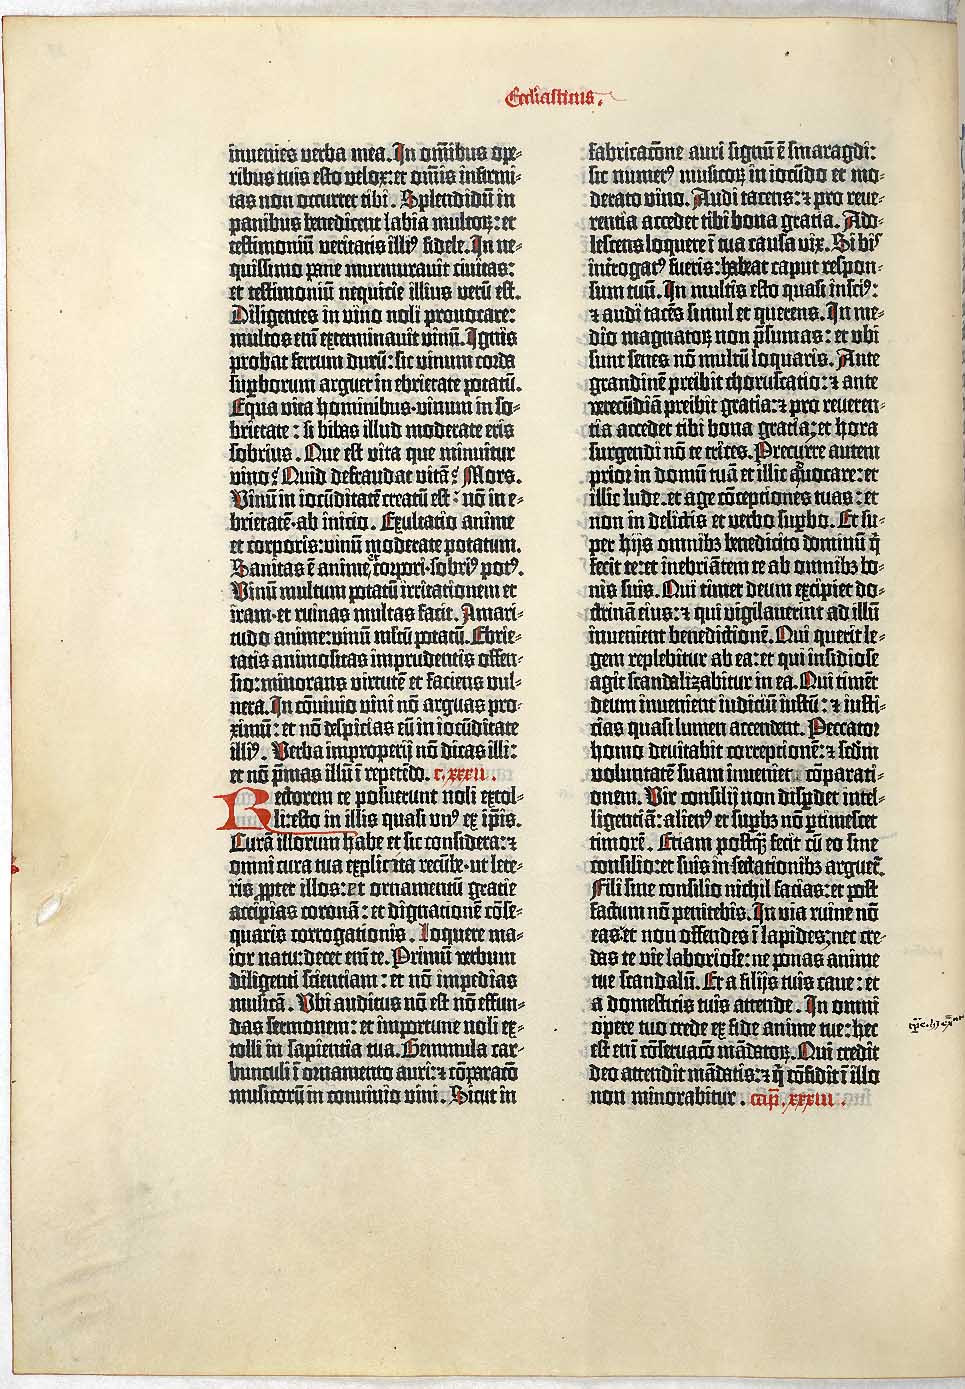 Ecclesiasticus.
inuenies verba mea. In om̄ibus ope-
ribus tuis esto velox: et om̄is infirmi-
tas non occurret tibi. Splendidū in
panibus benedicent labia multoꝝ: et
testimoniū veritatis illiꝰ fidele. In ne-
quissimo pane murmurauit ciuitas:
et testimoniū nequicie illius verū est.
Diligentes in vino noli prouocare:
multos eni̅ exterminauit vinū. Ignis
probat ferrum durū: sic vinum corda
suꝑborum arguet in ebrietate potatū.
Equa vita hominibus·vinum in so-
brietate: si bibas illud moderate eris
sobrius. Que est vita que minuitur
vino? Quid defraudat vitā? Mors.
Vinū in iocūditatē creatū est: nō in e-
brietatē·ab inicio. Exultatio anime
et corporis: vinū moderate potatum.
Sanitas ē anime et corpori·sobriꝰ potꝰ.
Vinū multum potatū irritationem et
iram·et ruinas multas facit. Amari-
tudo anime: vinū mltū potatū. Ebrie-
tatis animositas imprudentis offen-
sio: minorans virtutē et faciens vul-
nera. In cōuiuio vini nō arguas pro-
ximū: et nō despicias eū in iocūditate
illiꝰ. Verba improperij nō dicas illi:
et nō p̄mas illū ī repetēdo. c. xxxii.
Rectorem te posuerunt noli extol-
li: esto in illis quasi vnꝰ ex ip̄is.
Curā illorum habe et sic considera: ⁊
omni cura tua explicita recūbe·ut lete-
ris ꝓpter illos: et ornamentū gratie
accipias coronā: et dignationē cōse-
quaris corrogationis. Loquere ma-
ior natu: decet eni̅ te. Primū verbum
diligenti scientiam: et nō impedias
musicā. Vbi auditus nō est nō effun-
das sermonem: et importune noli ex-
tolli in sapientia tua. Gemmula car-
bunculi ī ornamento auri: ⁊ cōparacō
musicorū in conuiuio vini. Sicut in
fabricacōne auri signū ē smaragdi:
sic numerꝰ musicoꝝ in iocūdo et mo-
derato vino. Audi tacens: ⁊ pro reue-
rentia accedet tibi bona gratia. Ado-
lescens loquere ī tua causa vix. Si bis
int̄rogatꝰ fueris: habeat caput respon-
sum tuū. In multis esto quasi insciꝰ:
⁊ audi tacēs simul et querens. In me-
dio magnatoꝝ non p̄sumas: et vbi
sunt senes nō multū loquaris. Ante
grandinē preibit choruscatio: ⁊ ante
verecūdiā preibit gratia: ⁊ pro reueren-
tia accedet tibi bona gratia: et hora
surgendi nō te trices. Precurre autem
prior in domū tuā et illic aduocare: et
illic lude. et age cōceptiones tuas: et
non in delictis et verbo suꝑbo. Et su-
per hijs omnibꝫ benedicito dominū q̄
fecit te: et inebriātem te ab omnibꝫ bo-
nis suis. Qui timet deum excipiet do-
ctrinā eius: ⁊ qui vigilauerint ad illū
inuenient benedictionē. Qui querit le-
gem replebitur ab ea: et qui insidiose
agit scandalizabitur in ea. Qui timēt
deum inuenient iudiciū iustū: ⁊ iusti-
cias quasi lumen accendent. Peccator
homo deuitabit correptionē: ⁊ scdm
voluntatē suam inueniet cōparati-
onem. Vir consilij non disꝑdet intel-
ligentiā: alienꝰ et suꝑbꝰ nō ꝑtimescet
timorē. Etiam postꝗ̄ fecit cū eo sine
consilio: et suis in sectationibꝫ arguet̄.
Fili sine consilio nichil facias: et post
factum nō penitebis. In via ruine nō
eas et non offendes ī lapides: nec cre-
das te vie laboriose: ne ponas anime
tue scandalū. Et a filijs tuis caue: et
a domesticis tuis attende. In omni
opere tuo crede ex fide anime tue: hec
est eni̅ cōseruacō mādatoꝝ. Qui credit
deo attendit mādatis: ⁊ q̄ cōfidit ī illo
non minorabitur. cap̄. xxxiii.